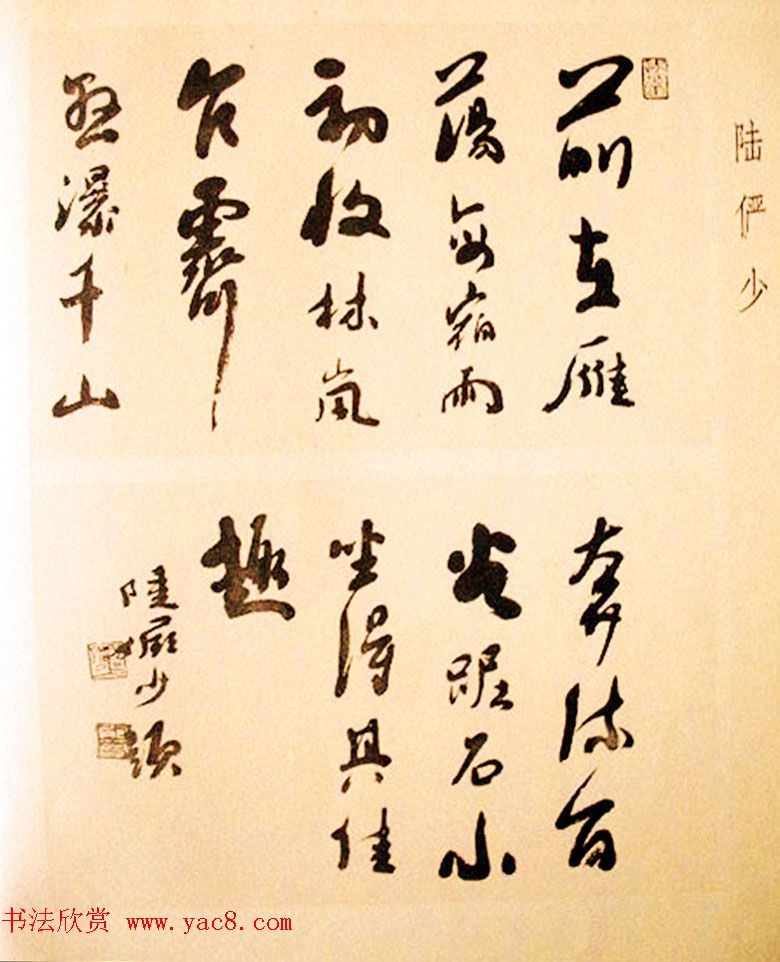 陆俨少
以前在雁
蕩每宿雨
初收林嵐
乍霽
懸瀑千山
奔流百
谷踞石小
坐得具佳
趣
陸儼少題
书法欣赏 www.yac8.com